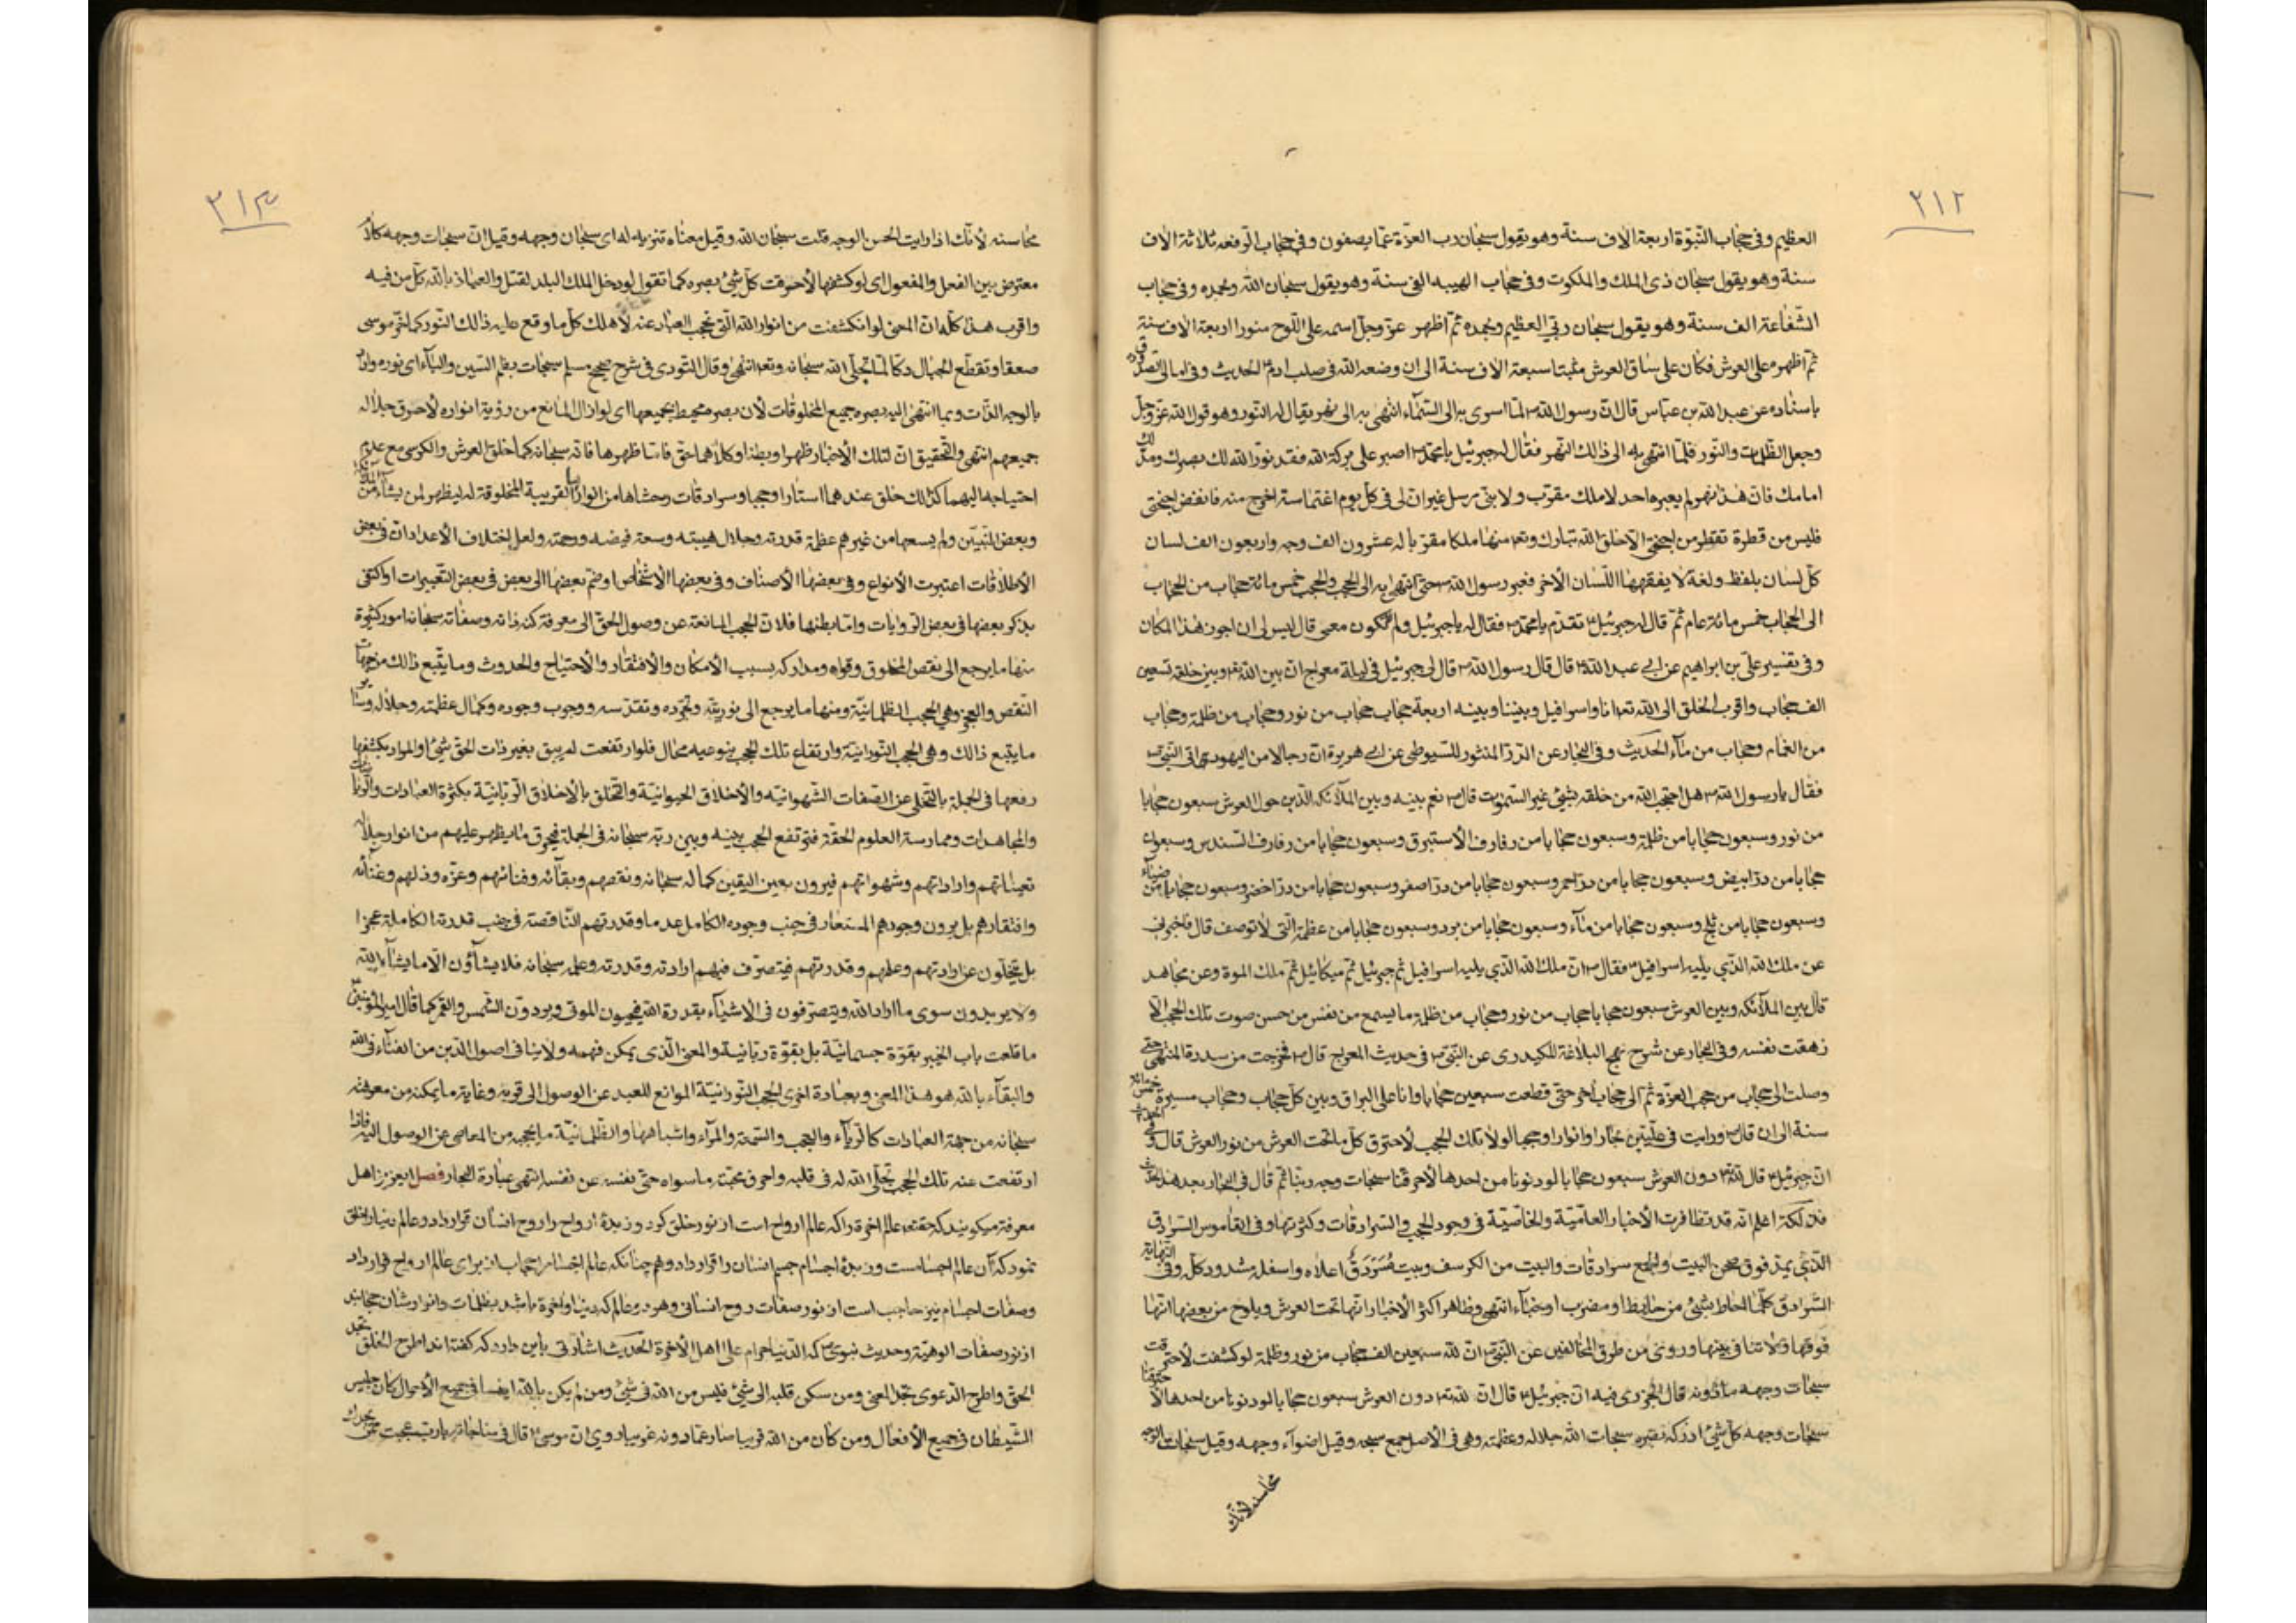 ٢١٢
العظيم وفى حجاب النبّوة اربعة الاف سنة وهو يقول سبحان رب العزة عمّا يصفون وفى حجاب الرفعه ثلاثة الاف
سنة وهو يقول سبحان ذى الملك والملكوت وفى حجاب الهيبه الفى سنة وهو يقول سبحان الله وبحمده وفى حجاب
الشفاعة الف سنة وهو يقول سبحان ربّى العظيم وبحمده ثم اظهر عزّ وجلّ اسمه على اللّوح منورا اربعة الاف سنة
ثم اظهره على العرش فكان على ساق العرش مثبتا سبعة الاف سنة الى ان وضعه الله فى صلب ادم الحديث وفى امالى الصدوق
باسناده عن عبد الله بن عباس قال انّ رسول الله ص لمّا اسرى به الى السّماء انتهى به الى نهر يقال له النور وهو قول الله عزّ وجلّ
وجعل الظلمات والنّور فلمّا انتهى به الى ذالك النهر فقال له جبرئيل يا محمّد ص اصبر على بركة الله فقد نوّر الله لك بصرك ومدّ لك
امامك فانّ هذا نهر لم يعبره احد لا ملك مقرّب ولا نبىّ مرسل غير ان لى فى كلّ يوم اغتماسة اخرج منه فانفض اجنحتى
فليس من قطرة تقطر من اجنحتى الّا خلق الله تبارك وتع منها ملكا مقرّبا له عشرون الف وجه واربعون الف لسان
كلّ لسان بلفظ ولغة لا يفقهها اللّسان الاخر فعبر رسول الله ص حتى انتهى به الى الحجب والحجب خمس مائة حجاب من الحجاب
الى الحجاب خمس مائة عام ثمّ قال له جبرئيل تقدّم يا محمّد ص فقال له يا جبرئيل ولم لا تكون معى قال ليس لى ان اجوز هذا المكان
وفى تفسير علىّ بن ابراهيم عن ابى عبد الله ع قال قال رسول الله ص قال لى جبرئيل فى ليلة معراج انّ بين الله وبين خلقه تسعين
الف حجاب واقرب الخلق الى الله تع انا واسرافيل وبيننا وبينه اربعة حجاب حجاب من نور وحجاب من ظلمة وحجاب
من الغمام وحجاب من ماء الحديث وفى البحار عن الدرّ المنثور للسّيوطى عن ابى هريرة انّ رجلا من اليهود اتى النبى ص
فقال يا رسول الله ص هل احتجب الله من خلقه بشئ غير السّموات قال ص نعم بينه وبين الملآئكه الّذين حول العرش سبعون حجابا
من نور وسبعون حجابا من ظلمة وسبعون حجابا من رفارف الاستبرق وسبعون حجابا من رفارف السّندس وسبعون
حجابا من درّ ابيض وسبعون حجابا من درّ احمر وسبعون حجابا من درّ اصفر وسبعون حجابا من درّ اخضر وسبعون حجابا من ضيآء
وسبعون حجابا من ثلج وسبعون حجابا من ماء وسبعون حجابا من برد وسبعون حجابا من عظمة التى لا توصف قال فاخبرنى
عن ملك الله الّذى يليه اسرافيل فقال ص انّ ملك الله الّذى يليه اسرافيل ثم جبرئيل ثمّ ميكائيل ثمّ ملك الموة وعن مجاهد
قال بين الملآئكه وبين العرش سبعون حجابا حجاب من نور وحجاب من ظلمة ما يسمع من نفس من حسن صوت تلك الحجب الّا
زهقت نفسه وفى البحار عن شرح نهج البلاغة للكيدرى عن النّبى ص فى حديث المعراج قال ص فخرجت من سدرة المنتهى حتّى
وصلت الى حجاب من حجب العزّة ثمّ الى حجاب اخر حتّى قطعت سبعين حجابا وانا على البراق وبين كلّ حجاب وحجاب مسيرة خمس مائة
سنة الى ان قال ص ورايت فى علّيّين بحارا وانوارا وحجبا لولا تلك الحجب لاحترق كلّ ما تحت العرش من نور العرش قال وفى الحديث
انّ جبرئيل ع قال لله دون العرش سبعون حجابا لو دنونا من احدها لاحرقتنا سبحات وجه ربّنا ثمّ قال فى البحار بعد هذا
فذلكة اعلم انّه قد تظافرت الاخبار العاميّة والخاصيّة فى وجود الحجب والسّرادقات وكثرتها وفى القاموس السّرادق
الّذى يمدّ فوق صحن البيت والجمع سرادقات والبيت من الكرسف وبيت مُسَرْدَقٌ اعلاه واسفله مشدود كلّه وفى النهاية
السّرادق كلّما احاط بشئ من حايط او مضرب او خباء انتهى وظاهر اكثر الاخبار انّها تحت العرش ويلوح من بعضها انّها
فوقها ولا تنافى بينها وروى من طرق المخالفين عن النّبى ص انّ لله سبعين الف حجاب من نور وظلمة لو كشفت لاحرقت
سبحات وجهه ما دونه قال الجزرى فيه انّ جبرئيل ع قال انّ لله تع دون العرش سبعون حجابا لو دنونا من احدها لاحرقتنا
سبحات وجهه كلّ شئ ادركه بصره سبحات الله جلاله وعظمته وهى فى الاصل جمع سبحه وقيل اضوآء وجهه وقيل سبحات الوجه
محاسنه لانّك
٢١٣
محاسنه لانّك اذا رايت الحسن الوجه قلت سبحان الله وقيل معناه تنزيه له اى سبحان وجهه وقيل انّ سبحات وجهه كلام
معترض بين الفعل والمفعول اى لو كشفها لاحرقت كلّ شئ بصره كما تقول لو دخل الملك البلد لقتل والعياذ بالله كلّ من فيه
واقرب هذا كلّه انّ المعنى لو انكشفت من انوار الله الّتى تحجب العباد عنه لاهلك كلّ ما وقع عليه ذالك النّور كما خرّ موسى
صعقا وتقطّع الجبال دكّا لمّا تجلّى الله سبحانه وتع انتهى وقال النّووى فى شرح صحيح مسلم سبحات بضم السّين والباء اى نوره واراد
بالوجه الذّات وبما انتهى اليه بصره جميع المخلوقات لان بصره محيط بجميعها اى لو ازال المانع من رؤية انواره لاحرق جلاله
جميعهم انتهى والتّحقيق انّ لتلك الاخبار ظهرا وبطنا وكلاهما حقّ فامّا ظهرها فانّه سبحانه كما خلق العرش والكرسى مع عدم
احتياجه اليهما كذالك خلق عندهما استارا وحجبا وسرادقات وحشاها من انواره القريبة المخلوقة له ليظهر لمن يشآء من
وبعض النّبيّن ولم يسمعها من غيرهم عظمة قدرته وجلال هيبته وسعة فيضه ورحمته ولعلّ اختلاف الاعداد انّ فى بعض
الاطلاقات اعتبرت الانواع وفى بعضها الاصناف وفى بعضها الاشخاص او ضمّ بعضها الى بعض فى بعض التّعبيرات او اكتفى
بذكر بعضها فى بعض الرّوايات وامّا بطنها فلانّ الحجب المانعة عن وصول الخلق الى معرفة كنه ذاته وصفاته سبحانه امور كثيرة
منها ما يرجع الى نقص المخلوق وقواه ومداركه بسبب الامكان والافتقار والاحتياج والحدوث وما يتّبع ذالك من جهات
النّقص والعجز وهى الحجب الظّلمانيّة ومنها ما يرجع الى نوريّته وتجرّده وتقدّسه ووجوب وجوده وكمال عظمته وجلاله وسائر
ما يتّبع ذالك وهى الحجب النّورانيّة وارتفاع تلك الحجب بنوعيه محال فلو ارتفعت لم يبق بغير ذات الحقّ شئ او المراد بكشفها
رفعها فى الجملة بالتّخلّى عن الصّفات الشّهوانيّه والاخلاق الحيوانيّة والتّخلّق بالاخلاق الرّبانيّة بكثرة العبادات والرّياضات
والمجاهدات وممارسة العلوم الحقّة فترتفع الحجب بينه وبين ربّه سبحانه فى الجملة فيحرق ما يظهر عليهم من انوار جلاله
تعيّناتهم واراداتهم وشهواتهم فيرون بعين اليقين كماله سبحانه ونقصهم وبقآئه وفنائهم وعزّه وذلهم وغنآئه
وافتقارهم بل يرون وجودهم المستعار فى جنب وجوده الكامل عدما وقدرتهم النّاقصة فى جنب قدرته الكاملة عجزا
بل يتخلّون عن ارادتهم وعلمهم وقدرتهم فيتصرّف فيهم ارادته وقدرته وعلمه سبحانه فلا يشآؤن الّا ما يشآء الله
ولا يريدون سوى ما اراد الله ويتصرّفون فى الاشيآء بقدرة الله فيحيون الموتى ويردّون الشّمس والقمر كما قال امير المؤمنين
ما قلعت باب الخيبر بقوّة جسمانيّة بل بقوّة ربّانيّة والمعنى الّذى يمكن فهمه ولا ينافى اصول الدّين من الفنآء فى الله
والبقآء بالله هو هذا المعنى وبعبارة اخرى الحجب النّورانيّة الموانع للعبد عن الوصول الى قربه وغاية ما يمكنه من معرفته
سبحانه من جهة العبادات كالرّيآء والعجب والسّمعة والمرآء واشباهها والظّلمانيّة ما يحجبه من المعاصى عن الوصول اليه فاذا
ارتفعت عنه تلك الحجب تجلّى الله له فى قلبه واحرق محبّته ما سواه حتّى نفسه عن نفسه انتهى عبارة البحار فصل ايعزيز اهل
معرفة ميكويند كه حقتعه عالم اخرة را كه عالم ارواح است از نور خلق كرد وزبدۀ ارواح را روح انسان قرار داد وعالم دنيا را خلق
نمود كه آن عالم اجسامست وزبدۀ اجسام جسم انسان را قرار داد وهم چنانكه عالم اجسام را حجاب از براى عالم ارواح قرار داد
وصفات اجسام نيز حاجب است از نور صفات روح انسانى وهر دو عالم كه دنيا واخرة باشد بظلمات وانوارشان حجابند
از نور صفات الوهيّة وحديث نبوى ص كه الدنيا حرام على اهل الاخرة الحديث اشارتى باين دارد كه كفته اند اطرح الخلق تجد
الحق واطرح الدّعوى تجد المعنى ومن سكن قلبه الى شئ فليس من الله فى شئ ومن لم يكن بالله ايضا فى جميع الاحوال كان جليس
الشّيطان فى جميع الافعال ومن كان من الله قريبا صار عمّا دونه غريبا وروى انّ موسى ع قال فى مناجاته يا رب عجبت ممّن